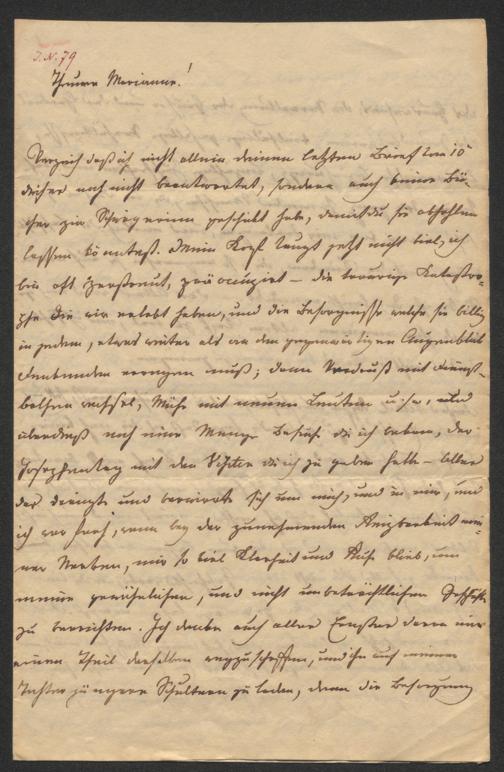 J.N. 79
Theure Marianne!
Verzeih daß ich nicht allein deinen letzten Brief vom 10
dieses noch nicht beantwortet, sondern auch keine Bü-
cher zur Schwegerinn geschickt habe, damit du sie abhohlen
lassen könntest. Mein Kopf taugt jetzt nicht viel, ich
bin oft zerstreut, präoccupirt – die traurige Katastro-
phe die wir erlebt haben, und die Besorgnisse welche sie billig
in jedem, etwas weiter als an den gegenwärtigen Augenblick
denkenden erregen muß; dann Verdruß mit Dienst-
bothen wechsel, Mühe mit neuen Leuten u.s.w. und
überdieß noch eine Menge Besuche die ich bekam, der
Josephsentag mit den Visiten die ich zu geben hatte – Alles
das drängte und verwirrte sich um mich, und in mir, und
ich war froh, wenn bey der zunehmenden Reizbarkeit mei-
ner Nerven, mir so viel Klarheit und Ruhe blieb, um
meine gewöhnlichen, und nicht unbeträchtlichen Geschäfte
zu verrichten. Ich denke auch alles Ernstes daran mir
einen Theil derselben wegzuschaffen, und ihn auf meiner
Tochter jüngere Schultern zu laden, denn die Besorgung